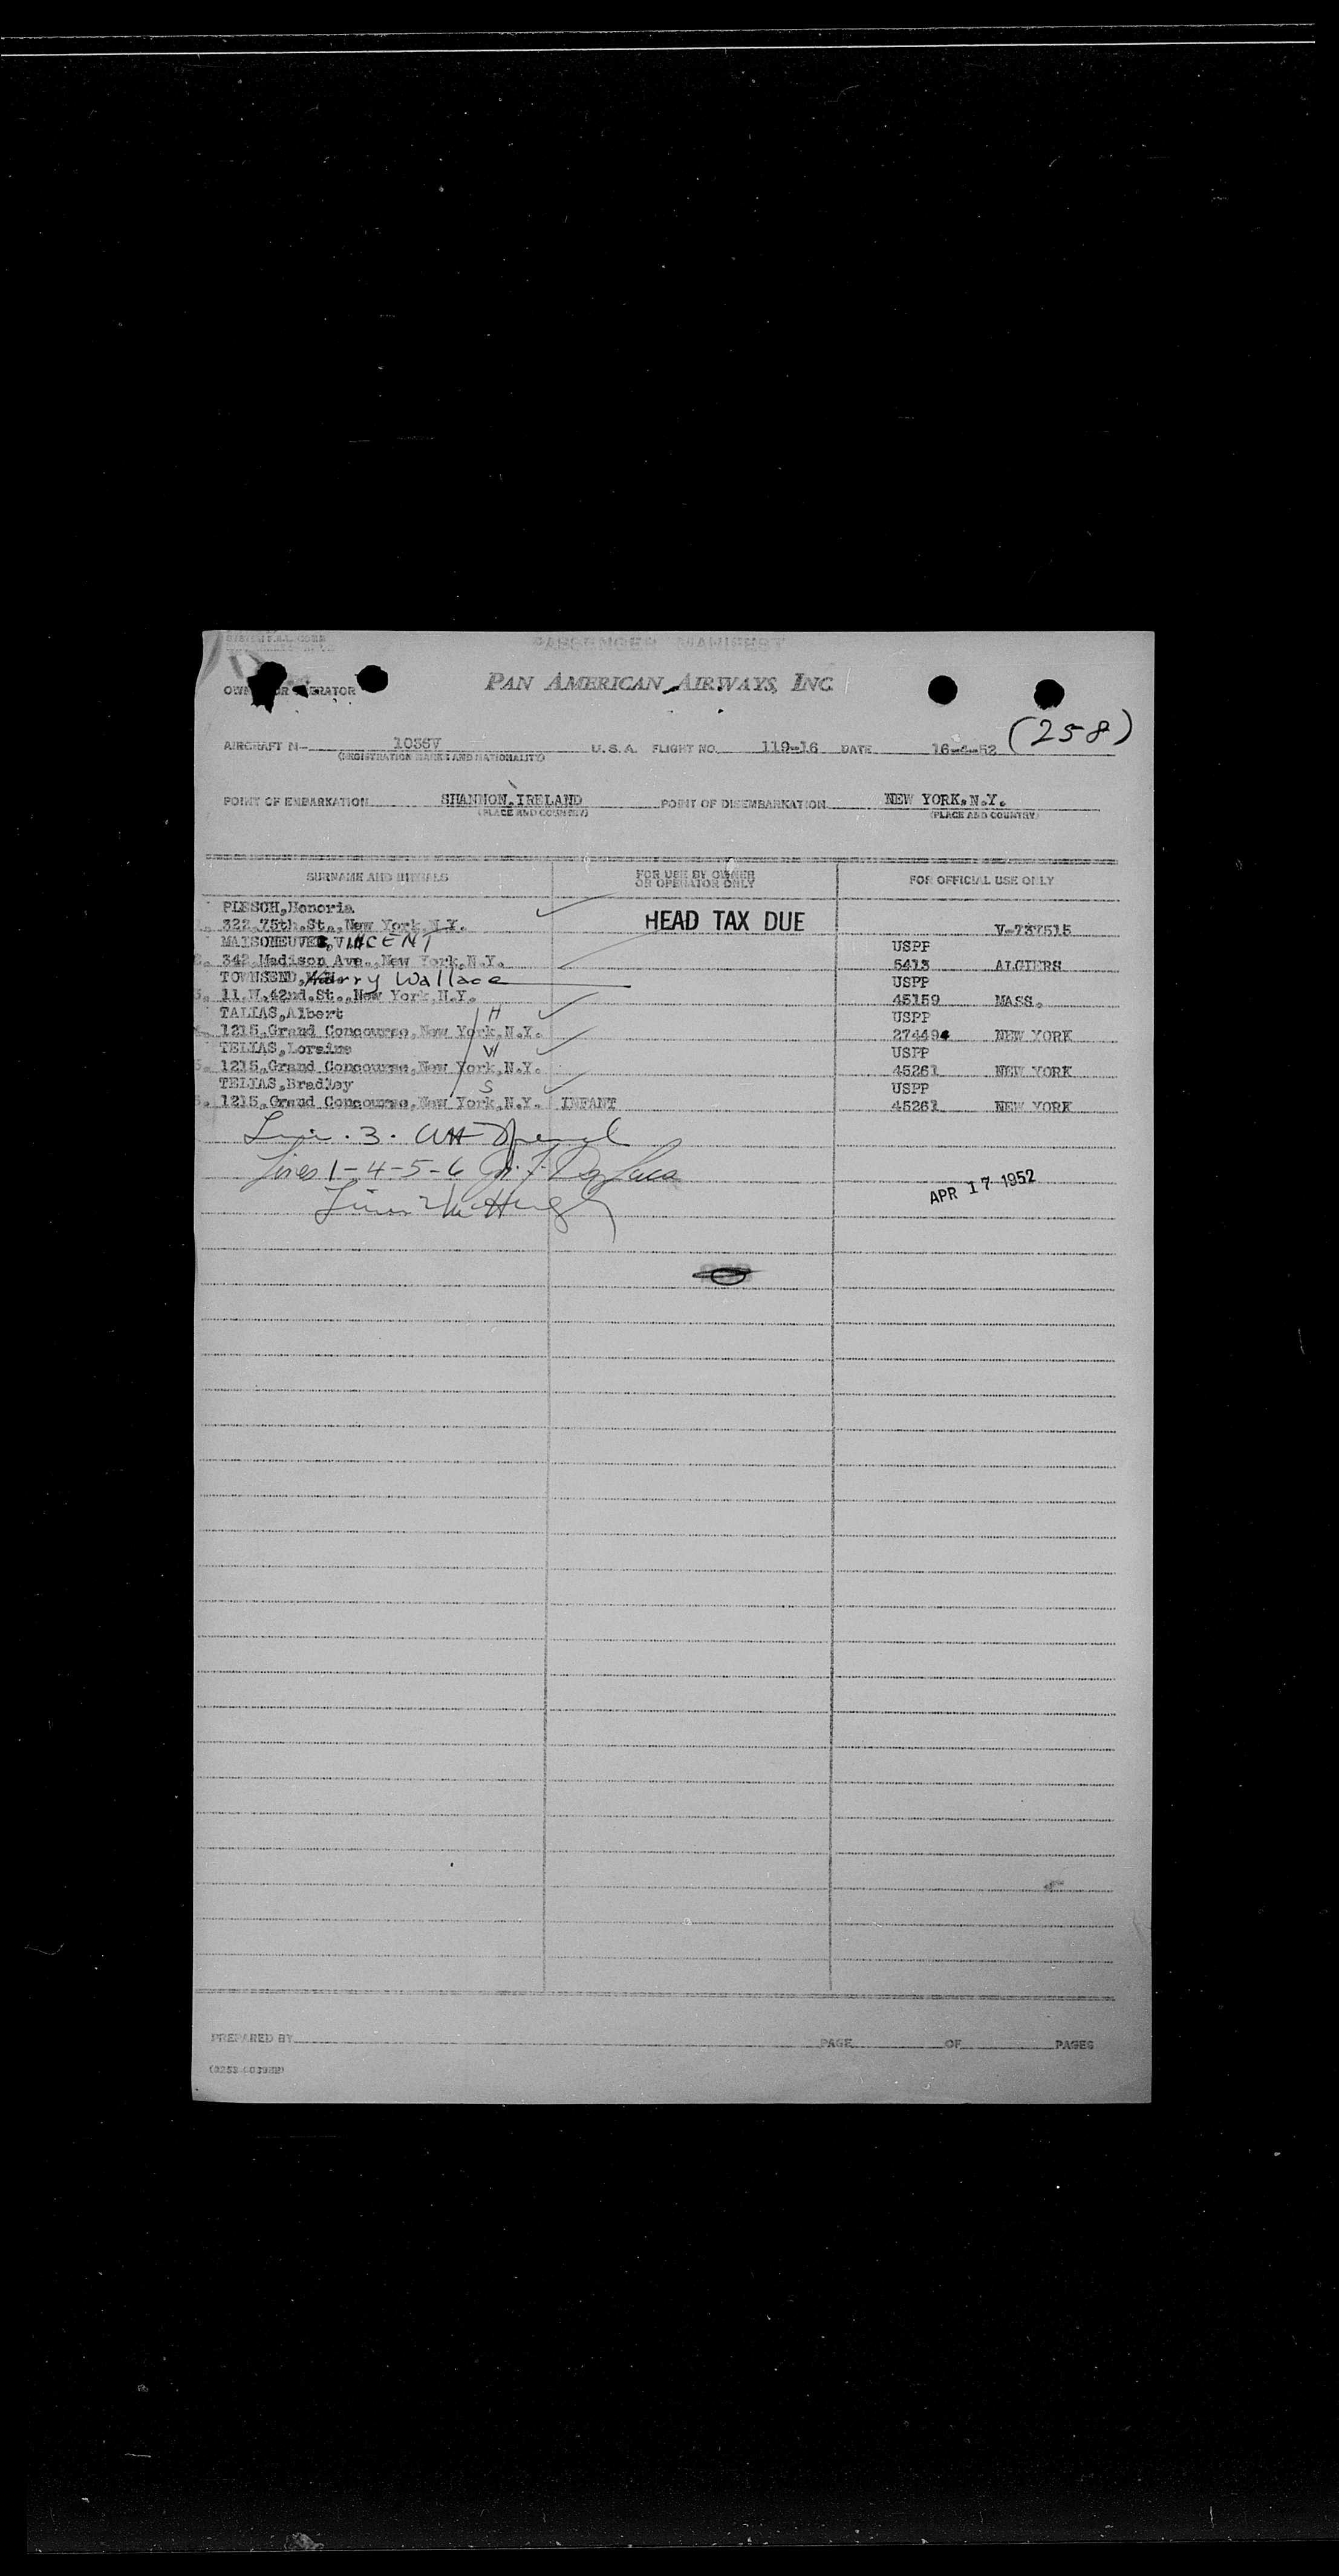 PASSENGER MANIFEST
OWNER OR OPERATOR PAN AMERICAN AIRWAYS, INC.
(258)
AIRCRAFT N- 1036V U.S.A. FLIGHT NO. 119-16 DATE 16-4-52
(REGISTRATION MARKS AND NATIONALITY)
POINT OF EMBARKATION SHANNON, IRELAND POINT OF DISEMBARKATION NEW YORK, N.Y.
(PLACE AND COUNTRY) (PLACE AND COUNTRY)
SURNAME AND INITIALS FOR USE BY OWNER OR OPERATOR ONLY FOR OFFICIAL USE ONLY
PLESCH, Honoria
322, 75th. St., New York N.Y. HEAD TAX DUE V-737515
MAISONEUVE, VINCENT USPP
342, Madison Ave., New York, N.Y. 5413 ALGIERS
TOWNSEND, Harry Wallace USPP
11 W. 42nd. St., New York, N.Y. 45159 MASS.
TALIAS, Albert H USPP
1215, Grand Concourse, New York, N.Y. 274494 NEW YORK
TELIAS, Loraine W USPP
5. 1215, Grand Concourse, New York, N.Y. 45261 NEW YORK
TELIAS, Bradley S USPP
1215, Grand Concourse, New York, N.Y. INFANT 45261 NEW YORK
3.
Lines 1-4-5-6
APR 17 1952
PREPARED BY PAGE OF PAGES